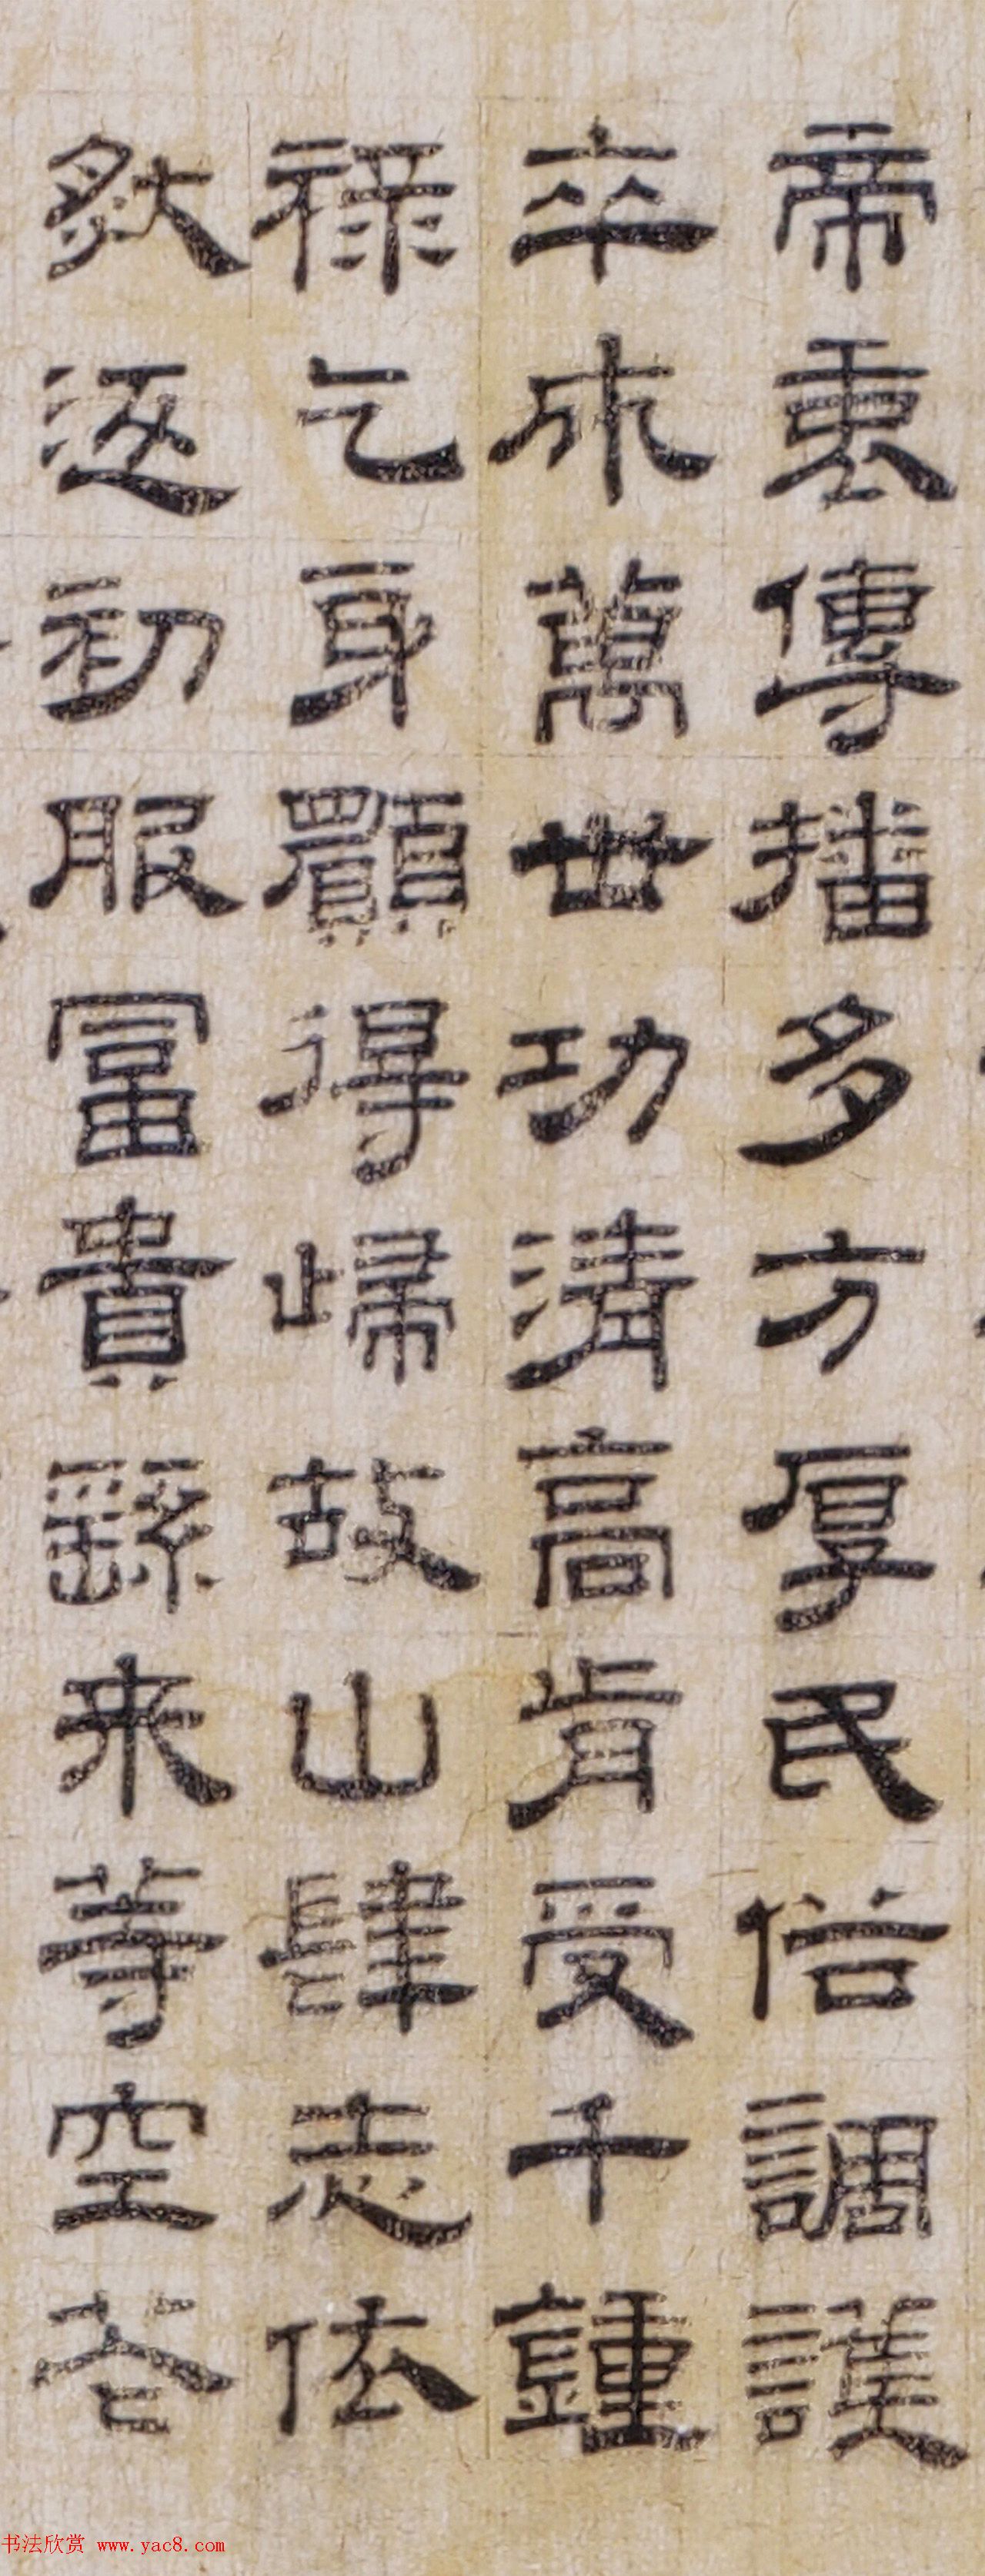 帝裏傳播多方厚民俗調護
卒成萬世功清高肯受千鍾
祿乞身願得歸故山肆志依
然返初服富貴繇来等空花
书法欣赏 www.yac8.com